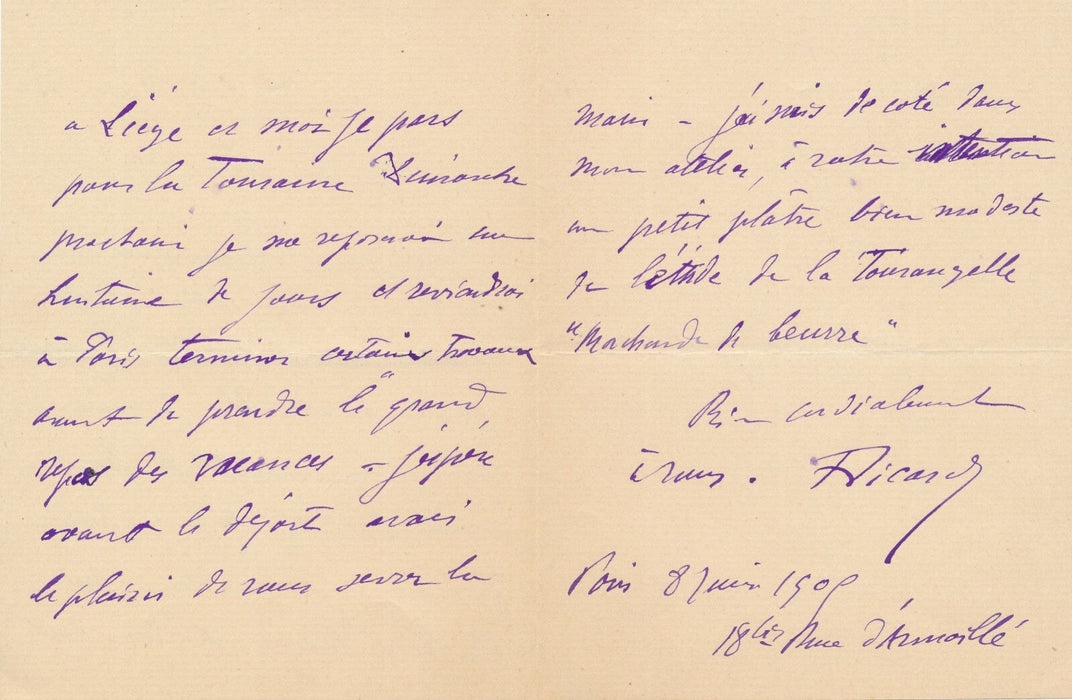 a Liége et moi je pars
pour la Touraine Dimanche
prochain je me reposerai une
huitaine de jours et reviendrai
à Paris terminer certains travaux
avant de prendre le "grand
repos des vacances - j'espère
avant le départ avoir
le plaisir de vous serrer la
main - j'ai mis de coté dans
mon atelier, à votre intention
un petit plâtre bien modeste
de l'étude de la Tourangelle
"Marchande de beurre"
Bien cordialement
à vous. Ricard
Paris 8 Juin
18bis Rue d'Armaillé